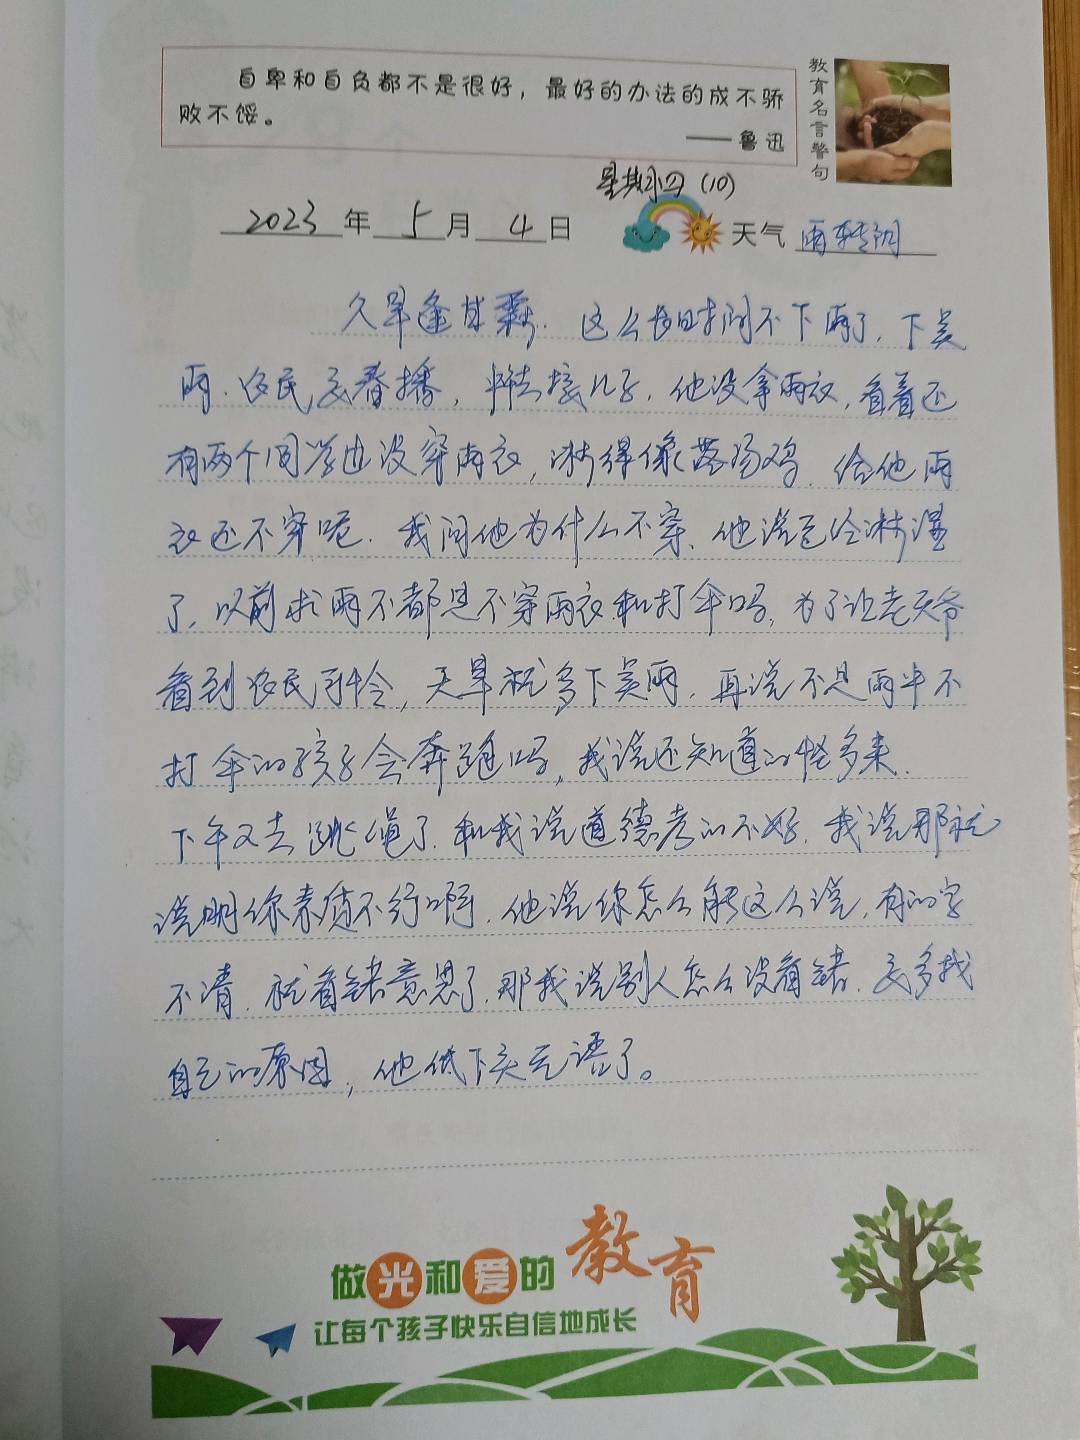 自卑和自负都不是很好，最好的办法的成不骄
败不馁。
——鲁迅
教育名言警句
星期四 (10)
2023年5月4日 天气 雨转阴
久旱逢甘霖. 这么长时间不下雨了. 下点
雨. 农民好春播, 接儿子. 他没拿雨衣, 看着还
有两个同学也没穿雨衣, 淋得像落汤鸡. 给他雨
衣还不穿呢. 我问他为什么不穿、他说已经淋湿
了, 以前求雨不都是不穿雨衣和打伞吗, 为了让老天爷
看到农民可怜, 天旱就多下点雨, 再说不是雨中不
打伞的孩子会奔跑吗, 我说还知道的怪多来.
下午又去跳绳了. 和我说道德考的不好. 我说那就
说明你素质不行啊. 他说你怎么能这么说, 有的字
不清. 就看错意思了, 那我说别人怎么没看错. 要多找
自己的原因, 他低下头无语了。
做光和爱的教育
让每个孩子快乐自信地成长